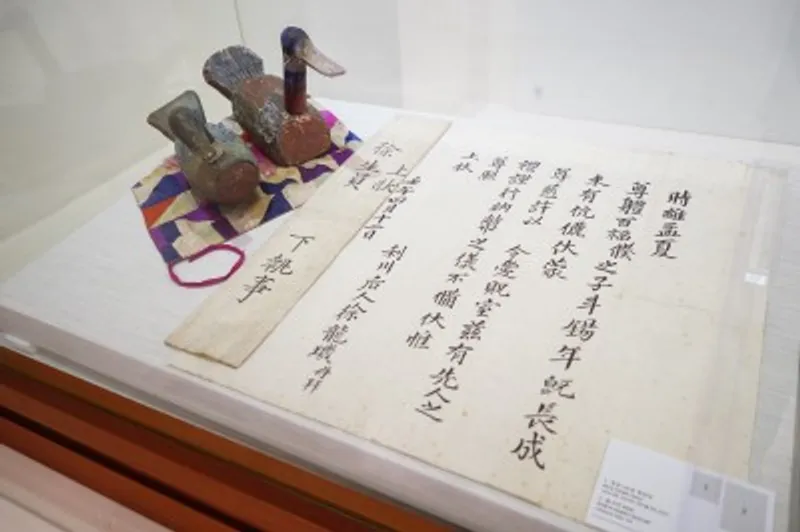 時維孟夏
尊體百福僕之子斗錫年旣長成
未有伉儷伏蒙
尊慈許以 令愛貺室玆有先人之
禮謹行納幣之儀不備伏惟
尊照
上狀
四月十二日 利川后人徐龍再拜
上狀
徐生員 下執事